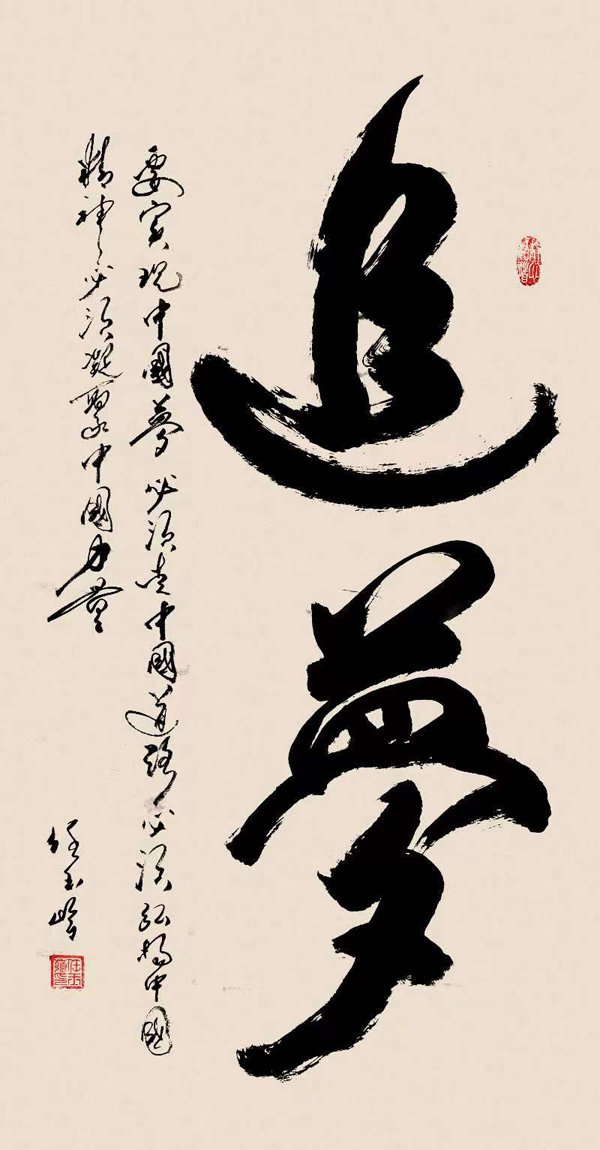 追夢
要实现中國夢必须走中國道路必须弘扬中國
精神必须凝聚中國力量
任玉岭